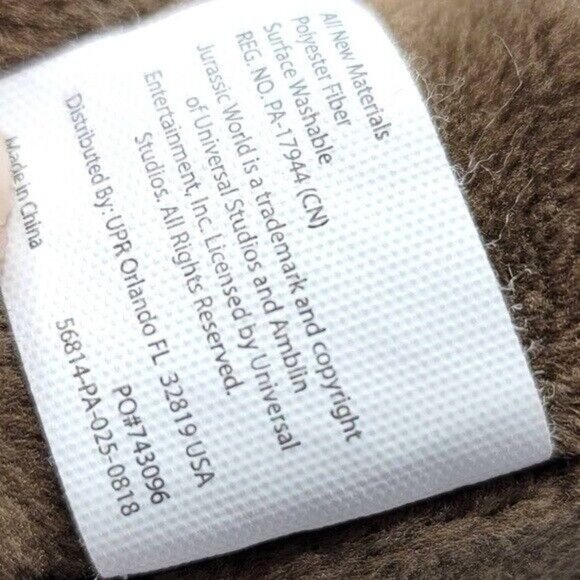 All New Materials
Polyester Fiber
Surface Washable
REG. NO. PA-17944 (CN)
Jurassic World is a trademark and copyright
of Universal Studios and Amblin
Entertainment, Inc. Licensed by Universal
Studios. All Rights Reserved.
Distributed By: UPR Orlando FL 32819 USA
PO#743096
56814-PA-025-0818
Made in China